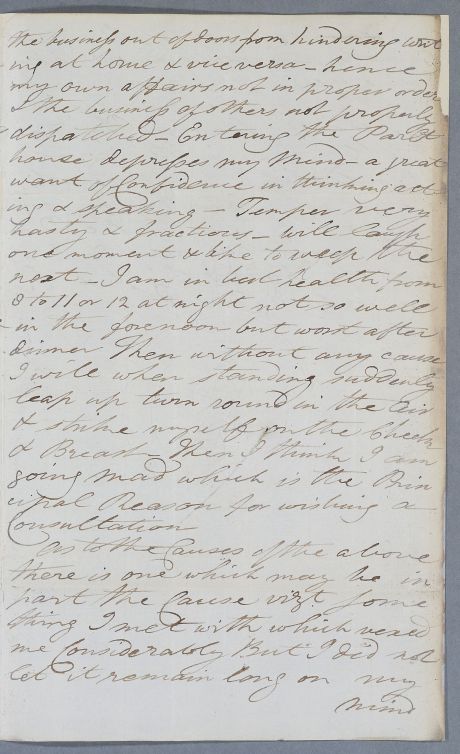 the business out of doors from hindering writ
ing at home & vice versa - hence
my own affairs not in proper order
& the business of others not properly
dispatched - Entering the Parlt
house depresses my Mind - a great
want of Confidence in thinking act
ing & speaking - Temper very
hasty & fractious - will laugh
one moment & like to weep the
next - I am in best health from
8 to 11 or 12 at night not so well
in the forenoon but worst after
dinner Then without any cause
I will when standing suddenly
leap up turn round in the Air
& strike myself on the Cheek
& Breast Then I think I am
going mad which is the Prin
cipal Reason for wishing a
Consultation
As to the Causes of the above
there is one which may be in
part the Cause vizt some
thing I met with which vexed
me Considerably But I did not
let it remain long on my
mind